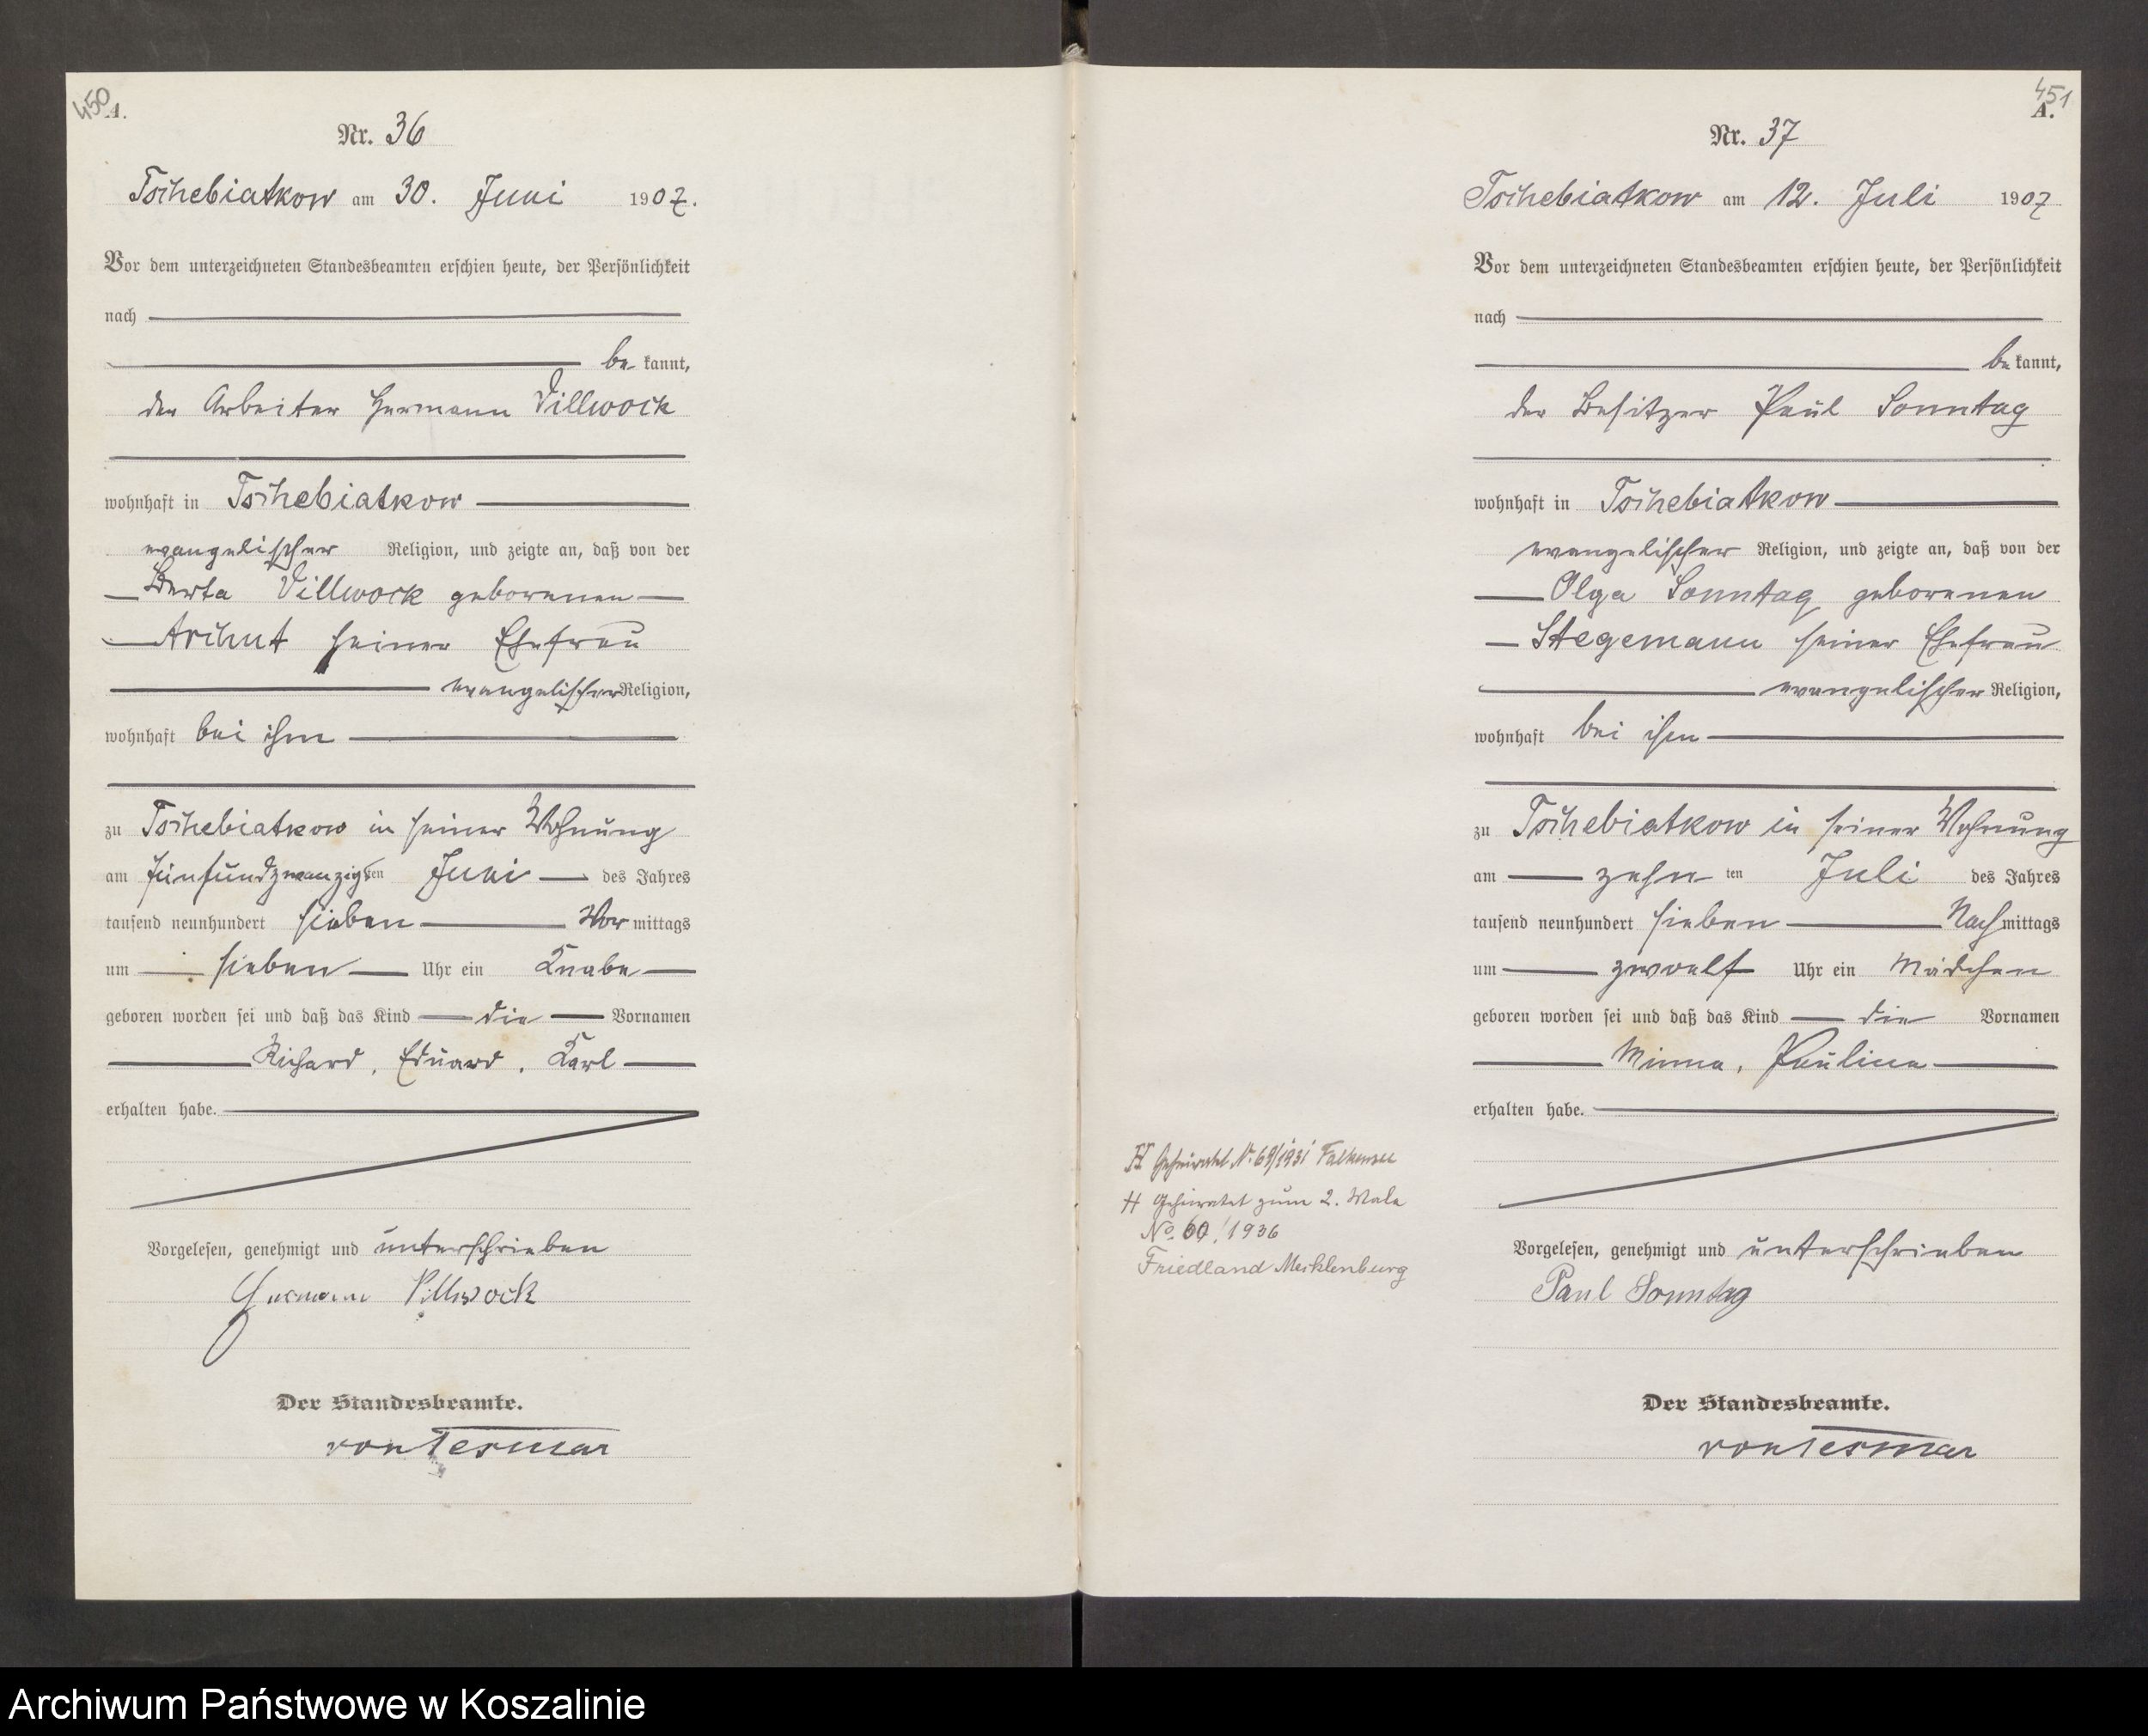 450
A.
Nr. 36
Tschebiatkow am 30. Juni 1907.
Vor dem unterzeichneten Standesbeamten erschien heute, der Persönlichkeit
nach
be kannt,
der Arbeiter Hermann Villwock
wohnhaft in Tschebiatkow
evangelischer Religion, und zeigte an, daß von der
Berta Villwock geborenen
Archut seiner Ehefrau
evangelischer Religion,
wohnhaft bei ihm
zu Tschebiatkow in seiner Wohnung
am fünfundzwanzigsten Juni des Jahres
tausend neunhundert sieben Vor mittags
um sieben Uhr ein Knabe
geboren worden sei und daß das Kind die Vornamen
Richard, Eduard, Karl
erhalten habe.
Vorgelesen, genehmigt und unterschrieben
Hermann Villwock
Der Standesbeamte.
von Tesmar
451
A.
Nr. 37
Tschebiatkow am 12. Juli 1907
Vor dem unterzeichneten Standesbeamten erschien heute, der Persönlichkeit
nach
be kannt,
der Besitzer Paul Sonntag
wohnhaft in Tschebiatkow
evangelischer Religion, und zeigte an, daß von der
Olga Sonntag geborenen
Stegemann seiner Ehefrau
evangelischer Religion,
wohnhaft bei ihm
zu Tschebiatkow in seiner Wohnung
am zehn ten Juli des Jahres
tausend neunhundert sieben Nach mittags
um zwoelf Uhr ein Mädchen
geboren worden sei und daß das Kind die Vornamen
Minna, Pauline
erhalten habe.
H Geheiratet Nr. 69/1931 Falkensee
H Geheiratet zum 2. Male
No. 60/1936
Friedland Mecklenburg
Vorgelesen, genehmigt und unterschrieben
Paul Sonntag
Der Standesbeamte.
von Tesmar
Archiwum Państwowe w Koszalinie